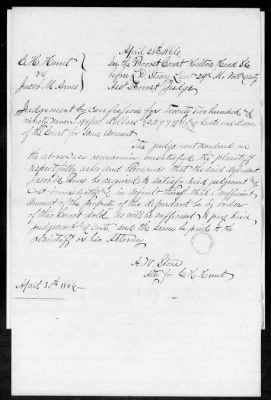 April 28th 1866
C. H. Hunt
vs
Jacob M. Ames
In the Provost Court Hilton Head S.C.
before
Provost Judge
Judgement by confession for Twenty Two hundred &
ninety seven dollars & costs and
of the Court for same amount
The judgement rendered in
the above case remaining unsatisfied the plaintiff
respectfully asks and demands that the said defendant
Jacob M. Ames be required to satisfy said judgement &
cost immediately & in default thereof that a sufficient
amount of the property of the defendant be by order
of this Court sold as will be sufficient to pay said
judgement & costs and the same be paid to the
plaintiff or his Attorney
A. W. Stone
Atty for C. H. Hunt
April 30th 1866